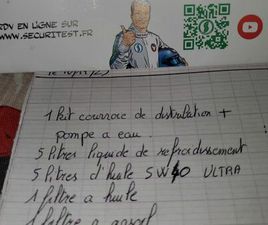 RDV EN LIGNE SUR
WWW.SECURITEST.FR
1 Kit courroie de distribution +
pompe a eau.
5 litres liquide de refroidissement
5 litres d'huile 5W40 ULTRA
1 filtre a huile
1 filtre a gasoil